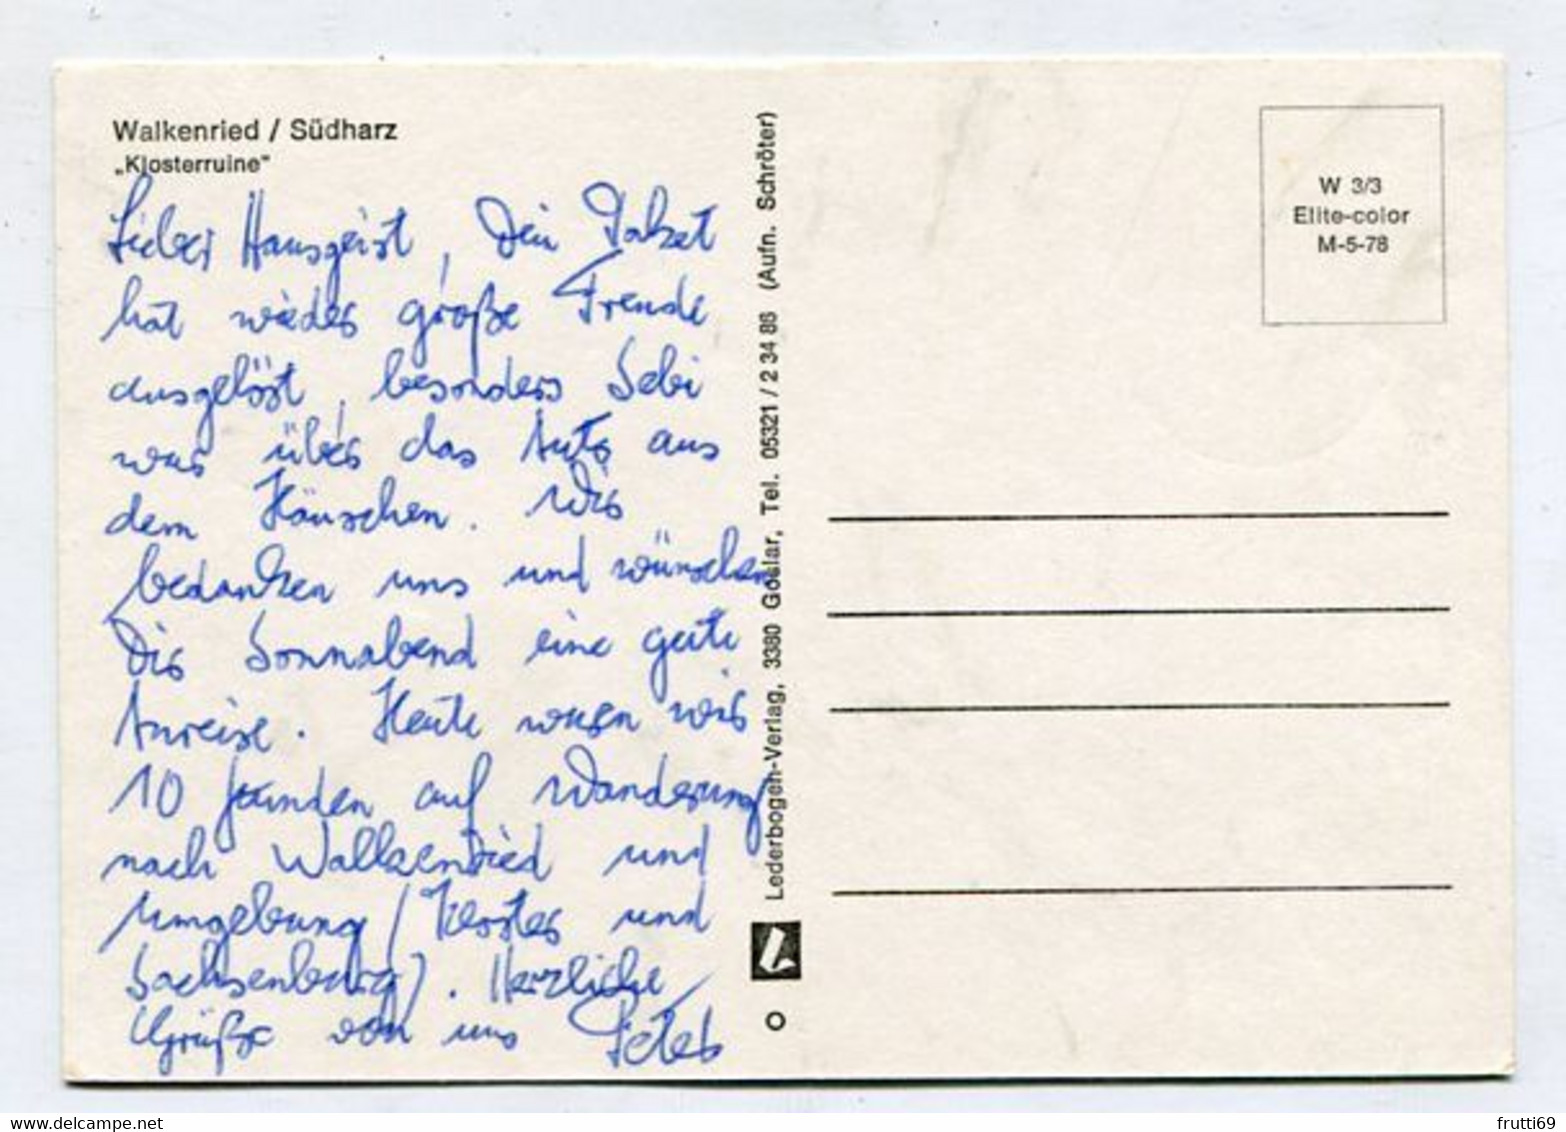 Walkenried / Südharz
„Klosterruine"
Lieber Hausgeist, Dein Paket
hat wieder große Freude
ausgelöst, besonders Sebi
war über das Auto aus
dem Häuschen. Wir
bedanken uns und wünschen
Dir Sonnabend eine gute
Anreise. Heute waren wir
10 Stunden auf Wanderung
nach Walkenried und
Umgebung (Kloster und
Sachsenburg). Herzliche
Grüße von uns Peter
Lederbogen-Verlag, 3380 Goslar, Tel. 05321 / 2 34 86 (Aufn. Schröter)
W 3/3
Elite-color
M-5-78
delcampe.net
frutti69